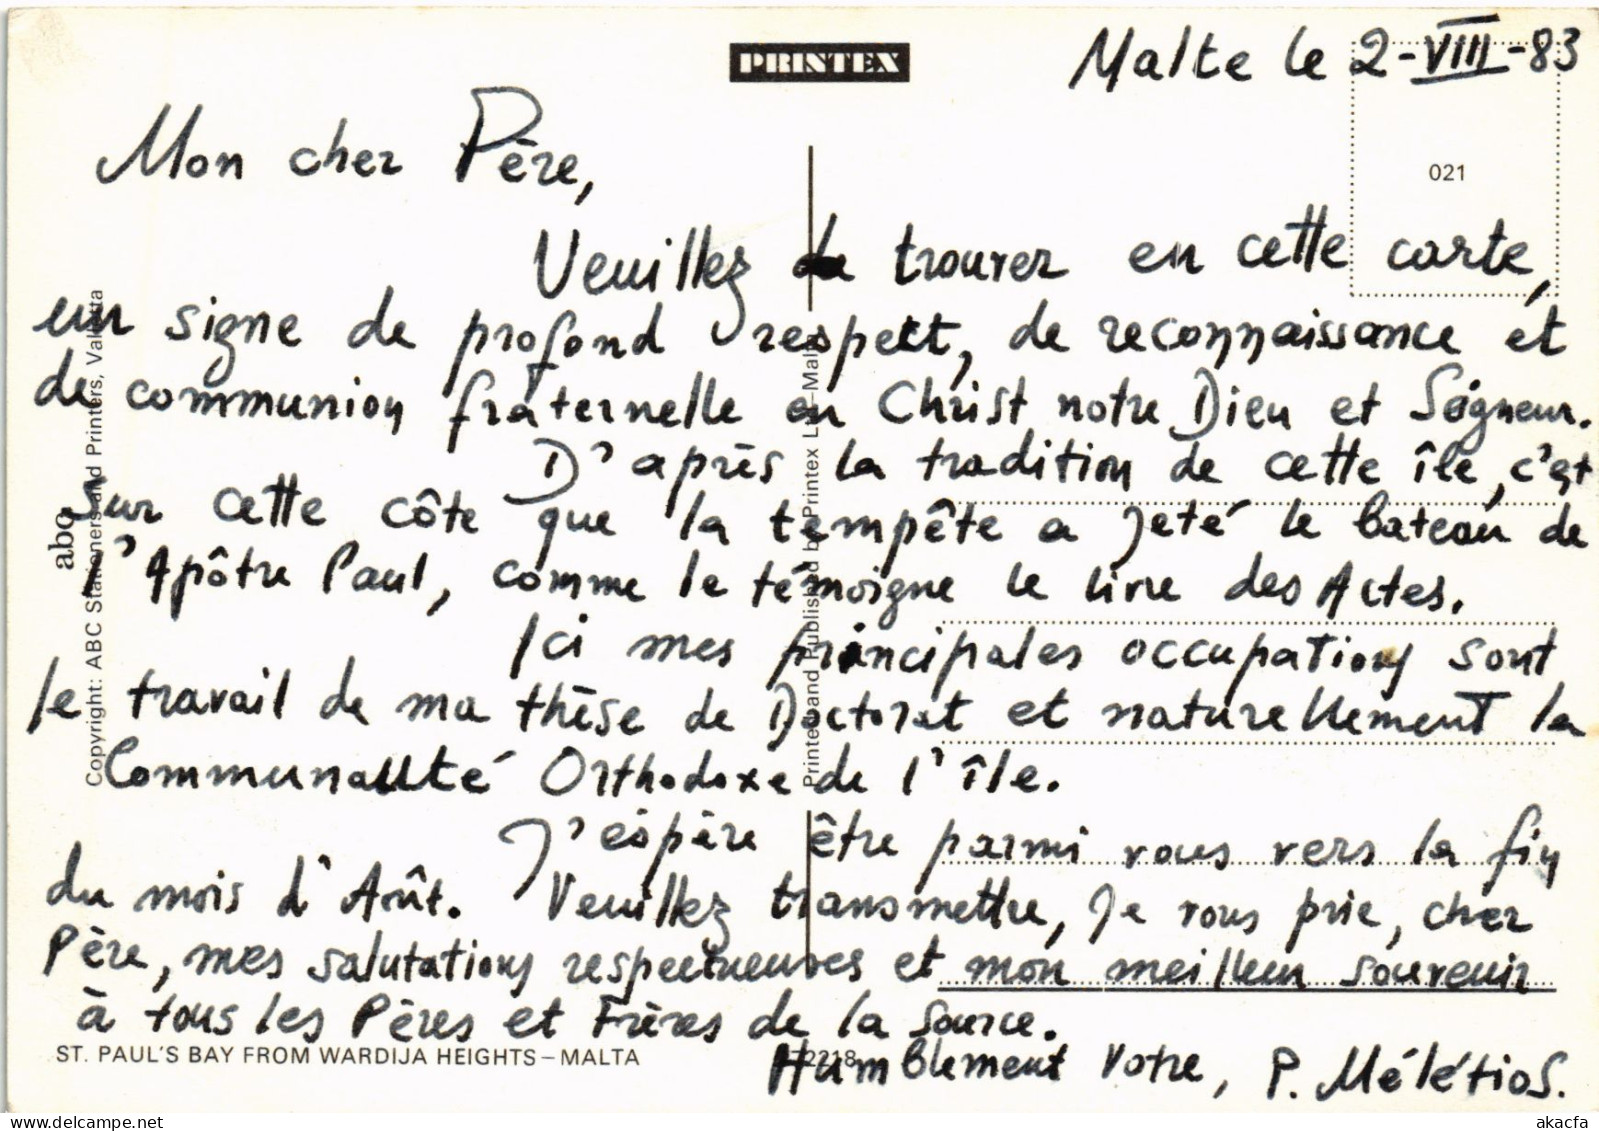 PRINTEX
Malte le 2-VIII-83
021
Mon cher Père,
Veuillez trouver en cette carte,
un signe de profond respect, de reconnaissance et
de communion fraternelle en Christ notre Dieu et Seigneur.
D'après la tradition de cette île, c'est
sur cette côte que la tempête a jeté le bateau de
l'Apôtre Paul, comme le témoigne le livre des Actes.
Ici mes principales occupations sont
le travail de ma thèse de Doctorat et naturellement la
Communauté Orthodoxe de l'île.
J'éspère être parmi vous vers la fin
du mois d'Août. Veuillez transmettre, je vous prie, cher
Père, mes salutations respectueuses et mon meilleur souvenir
à tous les Pères et Frères de la Source.
Humblement vôtre, P. Mélétios.
ST. PAUL'S BAY FROM WARDIJA HEIGHTS – MALTA
2218
abc
Copyright: ABC Stationers and Printers, Valletta
Printed and Published by Printex Ltd – Malta
akacfa